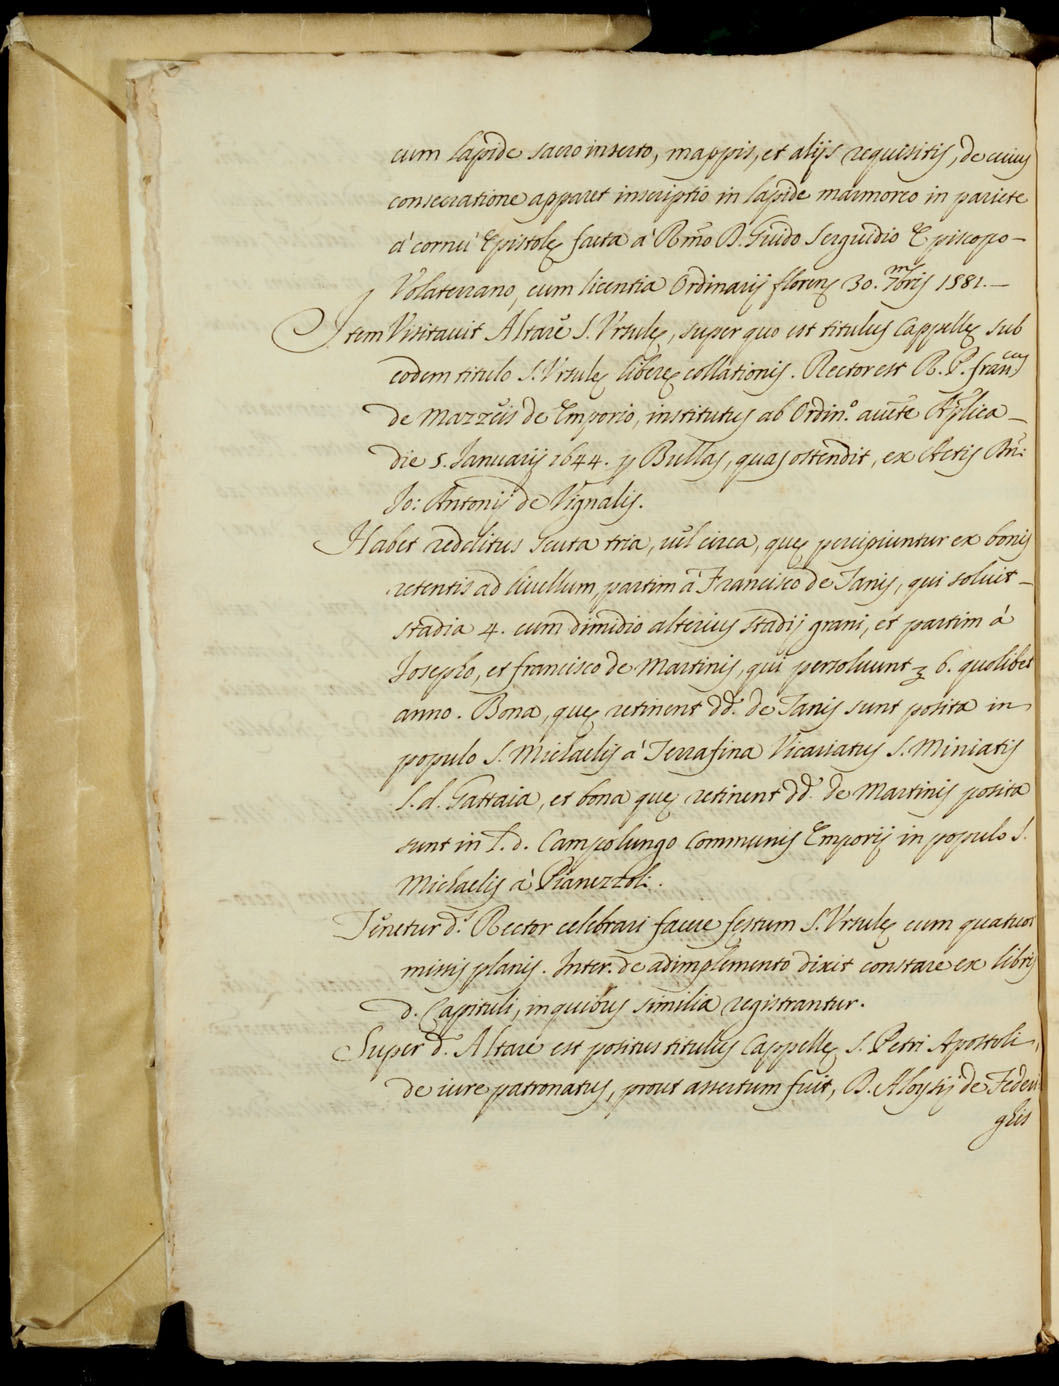 cum lapide sacro inserto, mappis, et alijs requisitis, de cuius
consecratione apparet inscriptio in lapide marmoreo in pariete
à cornu Epistolę facta à Rmo D. Guido Serguidio Episcopo
Volaterrano, cum licentia Ordinarij florens 30. 7mbris 1581.
Item Visitavit Altare S. Vrsulę, super quo est titulus Cappellę sub
eodem titulo S. Vrsulę liberę collationis. Rector est R. P. francus
de Mazzeis de Emporio, institutus ab Ordin.o aucte Aplica
die 5. Ianuarij 1644. p Bullas, quas ostendit, ex Actis
Io: Antonij de Vignalis.
Habet redditus Scuta tria, vel circa, quę percipiuntur ex bonis
retentis ad livellum, partim à Francisco de Ianis, qui soluit
stadia 4. cum dimidio alterius stadij grani, et partim à
Iosepho, et francisco de Martinis, qui persoluunt 6. quolibet
anno. Bona, quę retinent dd. de Ianis sunt posita in
populo S. Michaelis à Terrafina Vicariatus S. Miniatis
l. d. Gattaia, et bona quę retinent dd. de Martinis posita
sunt in l. d. Campolungo Communis Emporij in populo S.
Michaelis à Pianezzoli.
Tenetur d. Rector celebrari facere festum S. Vrsulę cum quatuor
missis planis. Inter. de adimplemento dixit constare ex libris
d. Capituli, in quibus similia registrantur.
Super d. Altare est positus titulus Cappellę S. Petri Apostoli,
de iure patronatus, prout assertum fuit, D. Aloysij de Federi
ghis